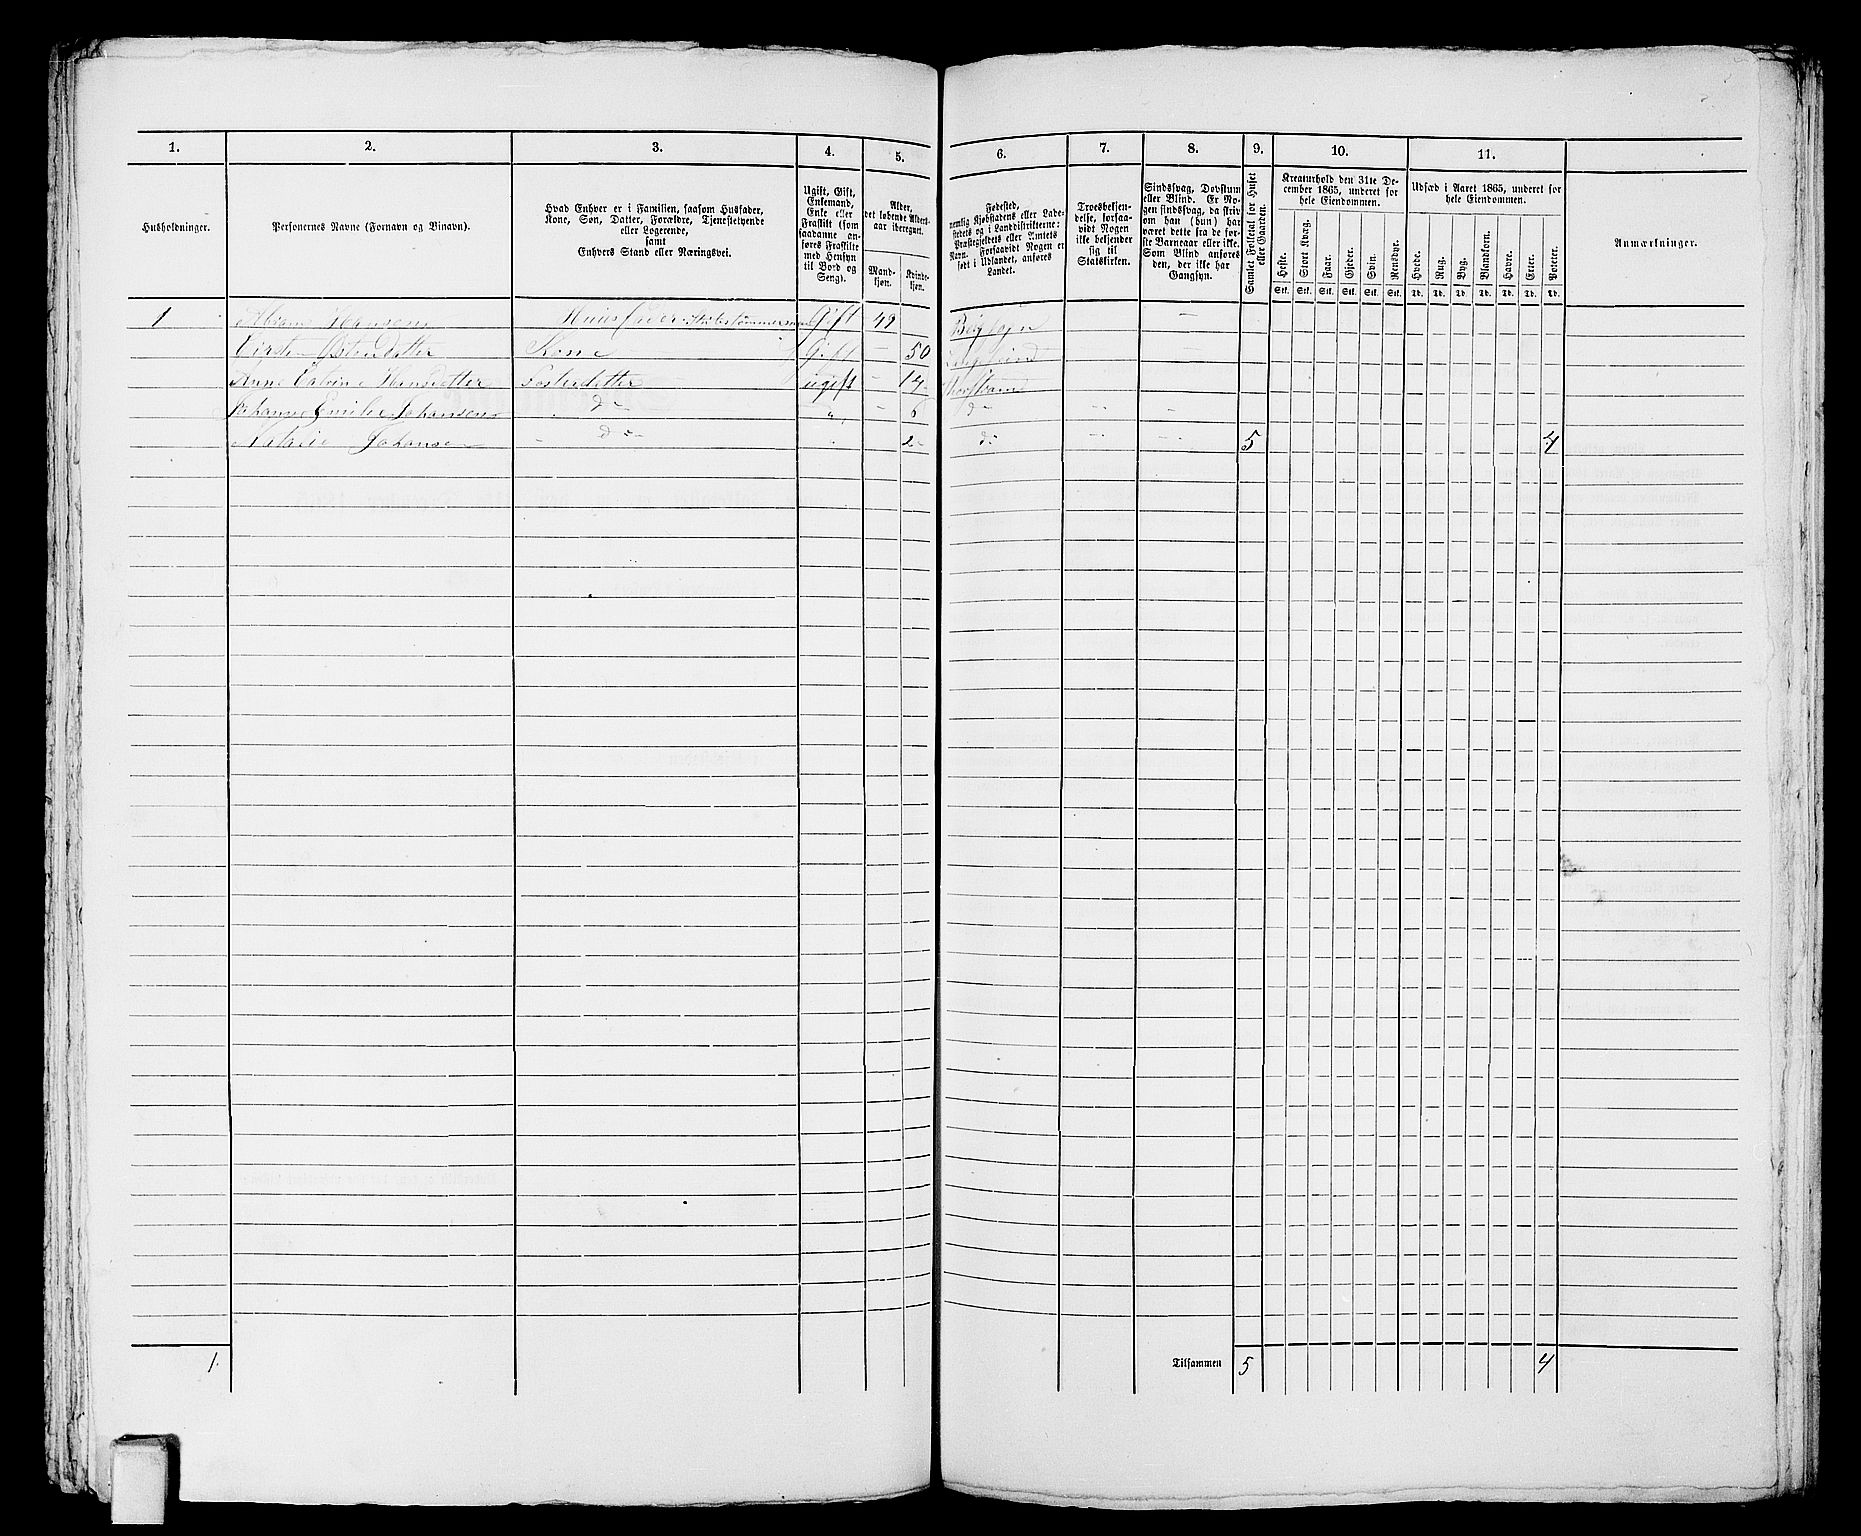 1. 2. 3. 4. 5. 6. 7. 8. 9. 10. 11.
Husholdninger.
Personernes Navne (Fornavn og Binavn).
Hvad Enhver er i Familien, saasom Husfader,
Kone, Søn, Datter, Forældre, Tjenestetyende
eller Logerende,
samt
Enhvers Stand eller Næringsvei.
Ugift, Gift,
Enkemand,
Enke eller
Fraskilt (som
saadanne an-
føres Fraskilte
med Hensyn
til Bord og
Seng).
Alder,
det løbende Alders-
aar iberegnet.
Mand-
kjøn.
Kvinde-
kjøn.
Fødested,
nemlig Kjøbstadens eller Lade-
stedets og i Landdistrikterne:
Præstegjeldets eller Amtets
Navn. Forsaavidt Nogen er
født i Udlandet, anføres
Landet.
Troesbekjen-
delse, forsaa-
vidt Nogen
ikke bekjender
sig til
Statskirken.
Sindssvag, Døvstum
eller Blind. Er No-
gen sindssvag, da skriv
om han (hun) har
været dette fra de før-
ste Barneaar eller ikke.
Som Blind anføres
den, der ikke har
Gangsyn.
Samlet Folketal for Huset
eller Gaarden.
Kreaturhold den 31te De-
cember 1865, underet for
hele Eiendommen.
Heste. Stort Kvæg. Faar. Gjeder. Svin. Rensdyr.
Stk. Stk. Stk. Stk. Stk. Stk.
Udsæd i Aaret 1865, underet for
hele Eiendommen.
Hvede. Rug. Byg. Blandkorn. Havre. Erter. Poteter.
Td. Td. Td. Td. Td. Td. Td.
Anmærkninger.
1 Hansen Huusfader Skibstømmermand Gift 49 —
Kone Gift — 50 —
Anne Hansdatter Sosterdatter ugift — 14
Johanne Emilie Johansen do " — 6 do — —
Johansen do " 2 do — — 5 4
1. Tilsammen 5 4